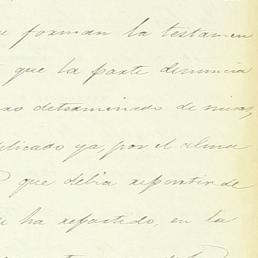 e forman la testamen
que la parte denuncia
determinado de misas,
plicado ya, por el alma
que debia repartir de
ha repartido, en la